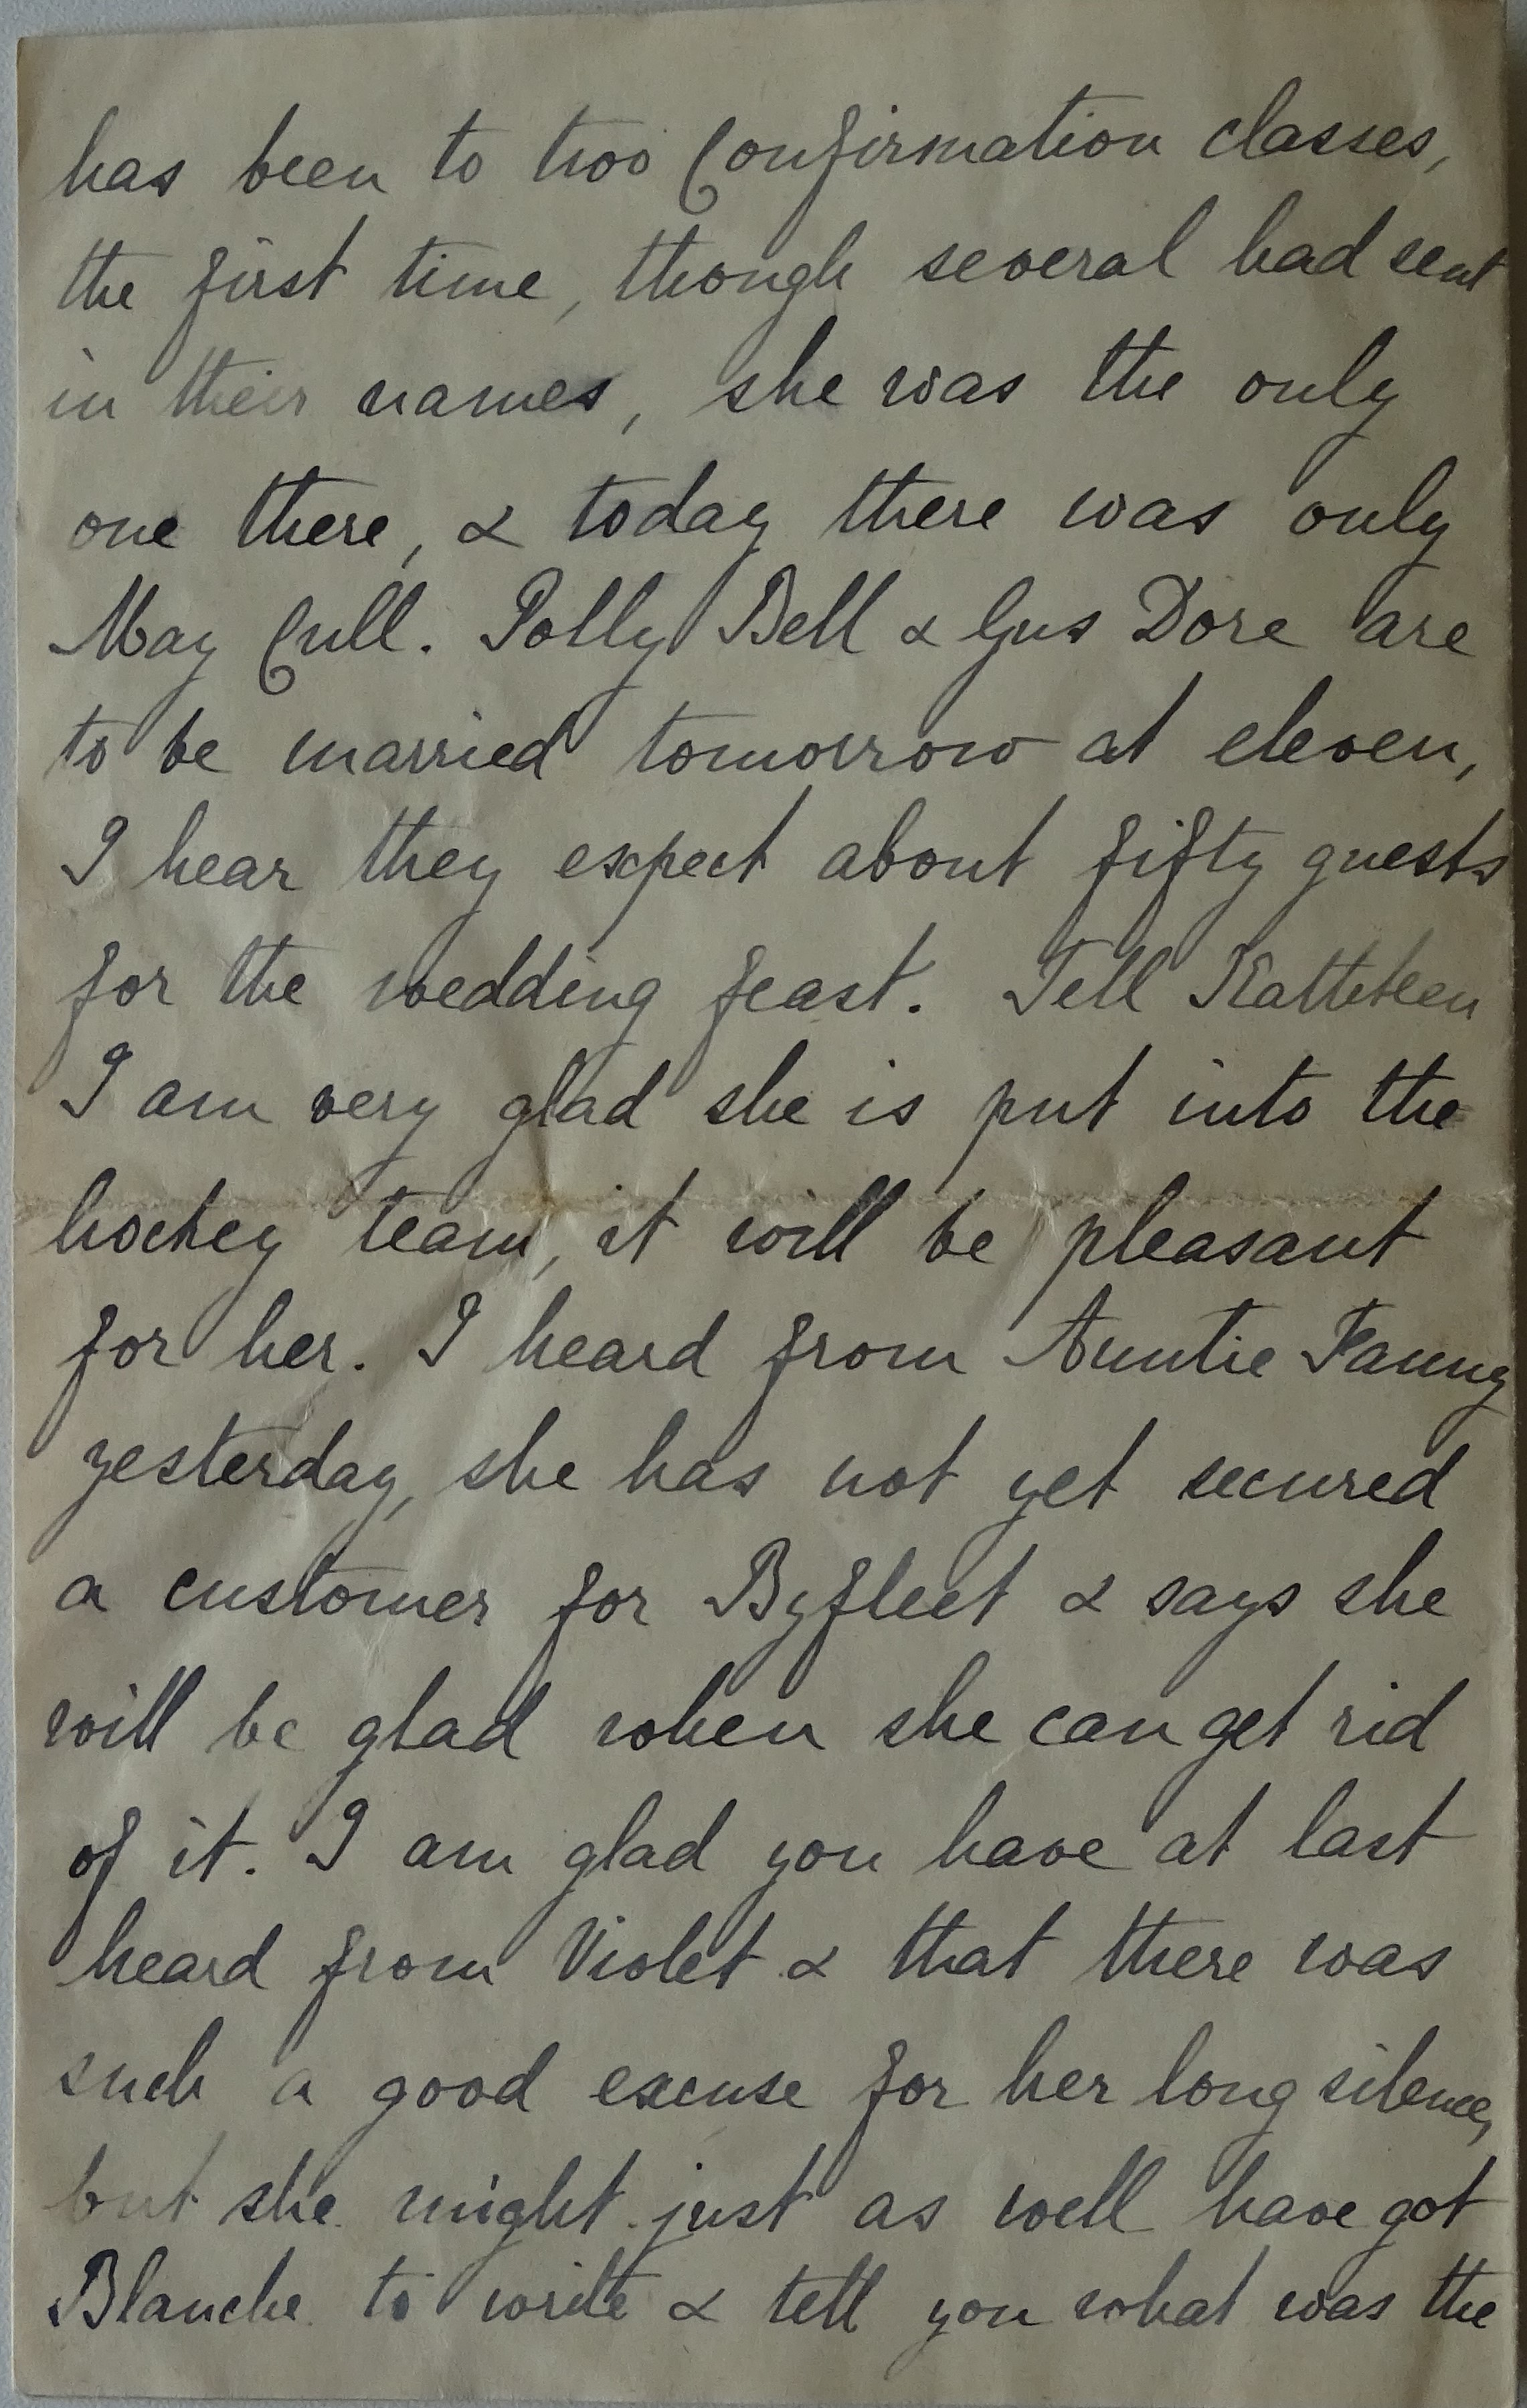 has been to two Confirmation classes,
the first time, though several had sent
in their names, she was the only
one there, & today there was only
May Cull. Polly Bell & Gus Dore are
to be married tomorrow at eleven,
I hear they expect about fifty guests
for the wedding feast. Tell Kathleen
I am very glad she is put into the
hockey team, it will be pleasant
for her. I heard from Auntie Fanny
yesterday, she has not yet secured
a customer for Byfleet & says she
will be glad when she can get rid
of it. I am glad you have at last
heard from Violet & that there was
such a good excuse for her long silence,
but she might just as well have got
Blanche to write & tell you what was the